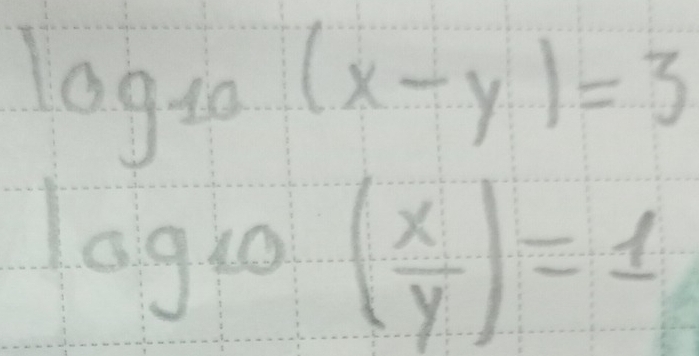 log₁₀ (x-y) = 3
log₁₀ (x/y) = 1